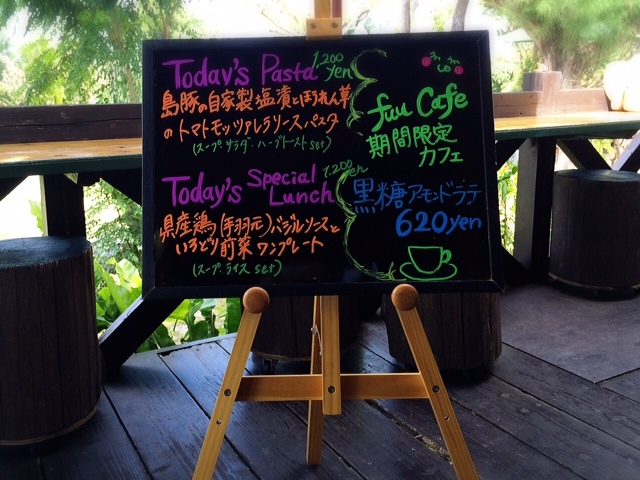 Today's Pasta 1,200 yen
島豚の自家製塩漬とほうれん草
のトマトモッツァレラソースパスタ
(スープ サラダ・ハーブトースト set)
Today's Special Lunch 1,200 yen
県産鶏(手羽元)バジルソースと
いろどり前菜ワンプレート
(スープ・ライス set)
fuu Cafe
期間限定
カフェ
黒糖アーモンドラテ
620yen